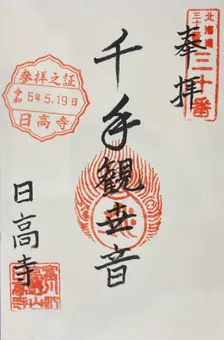 北海道
三十番
奉拝
千手観世音
日高寺
參拝之証
令和5年5.19日
日高寺